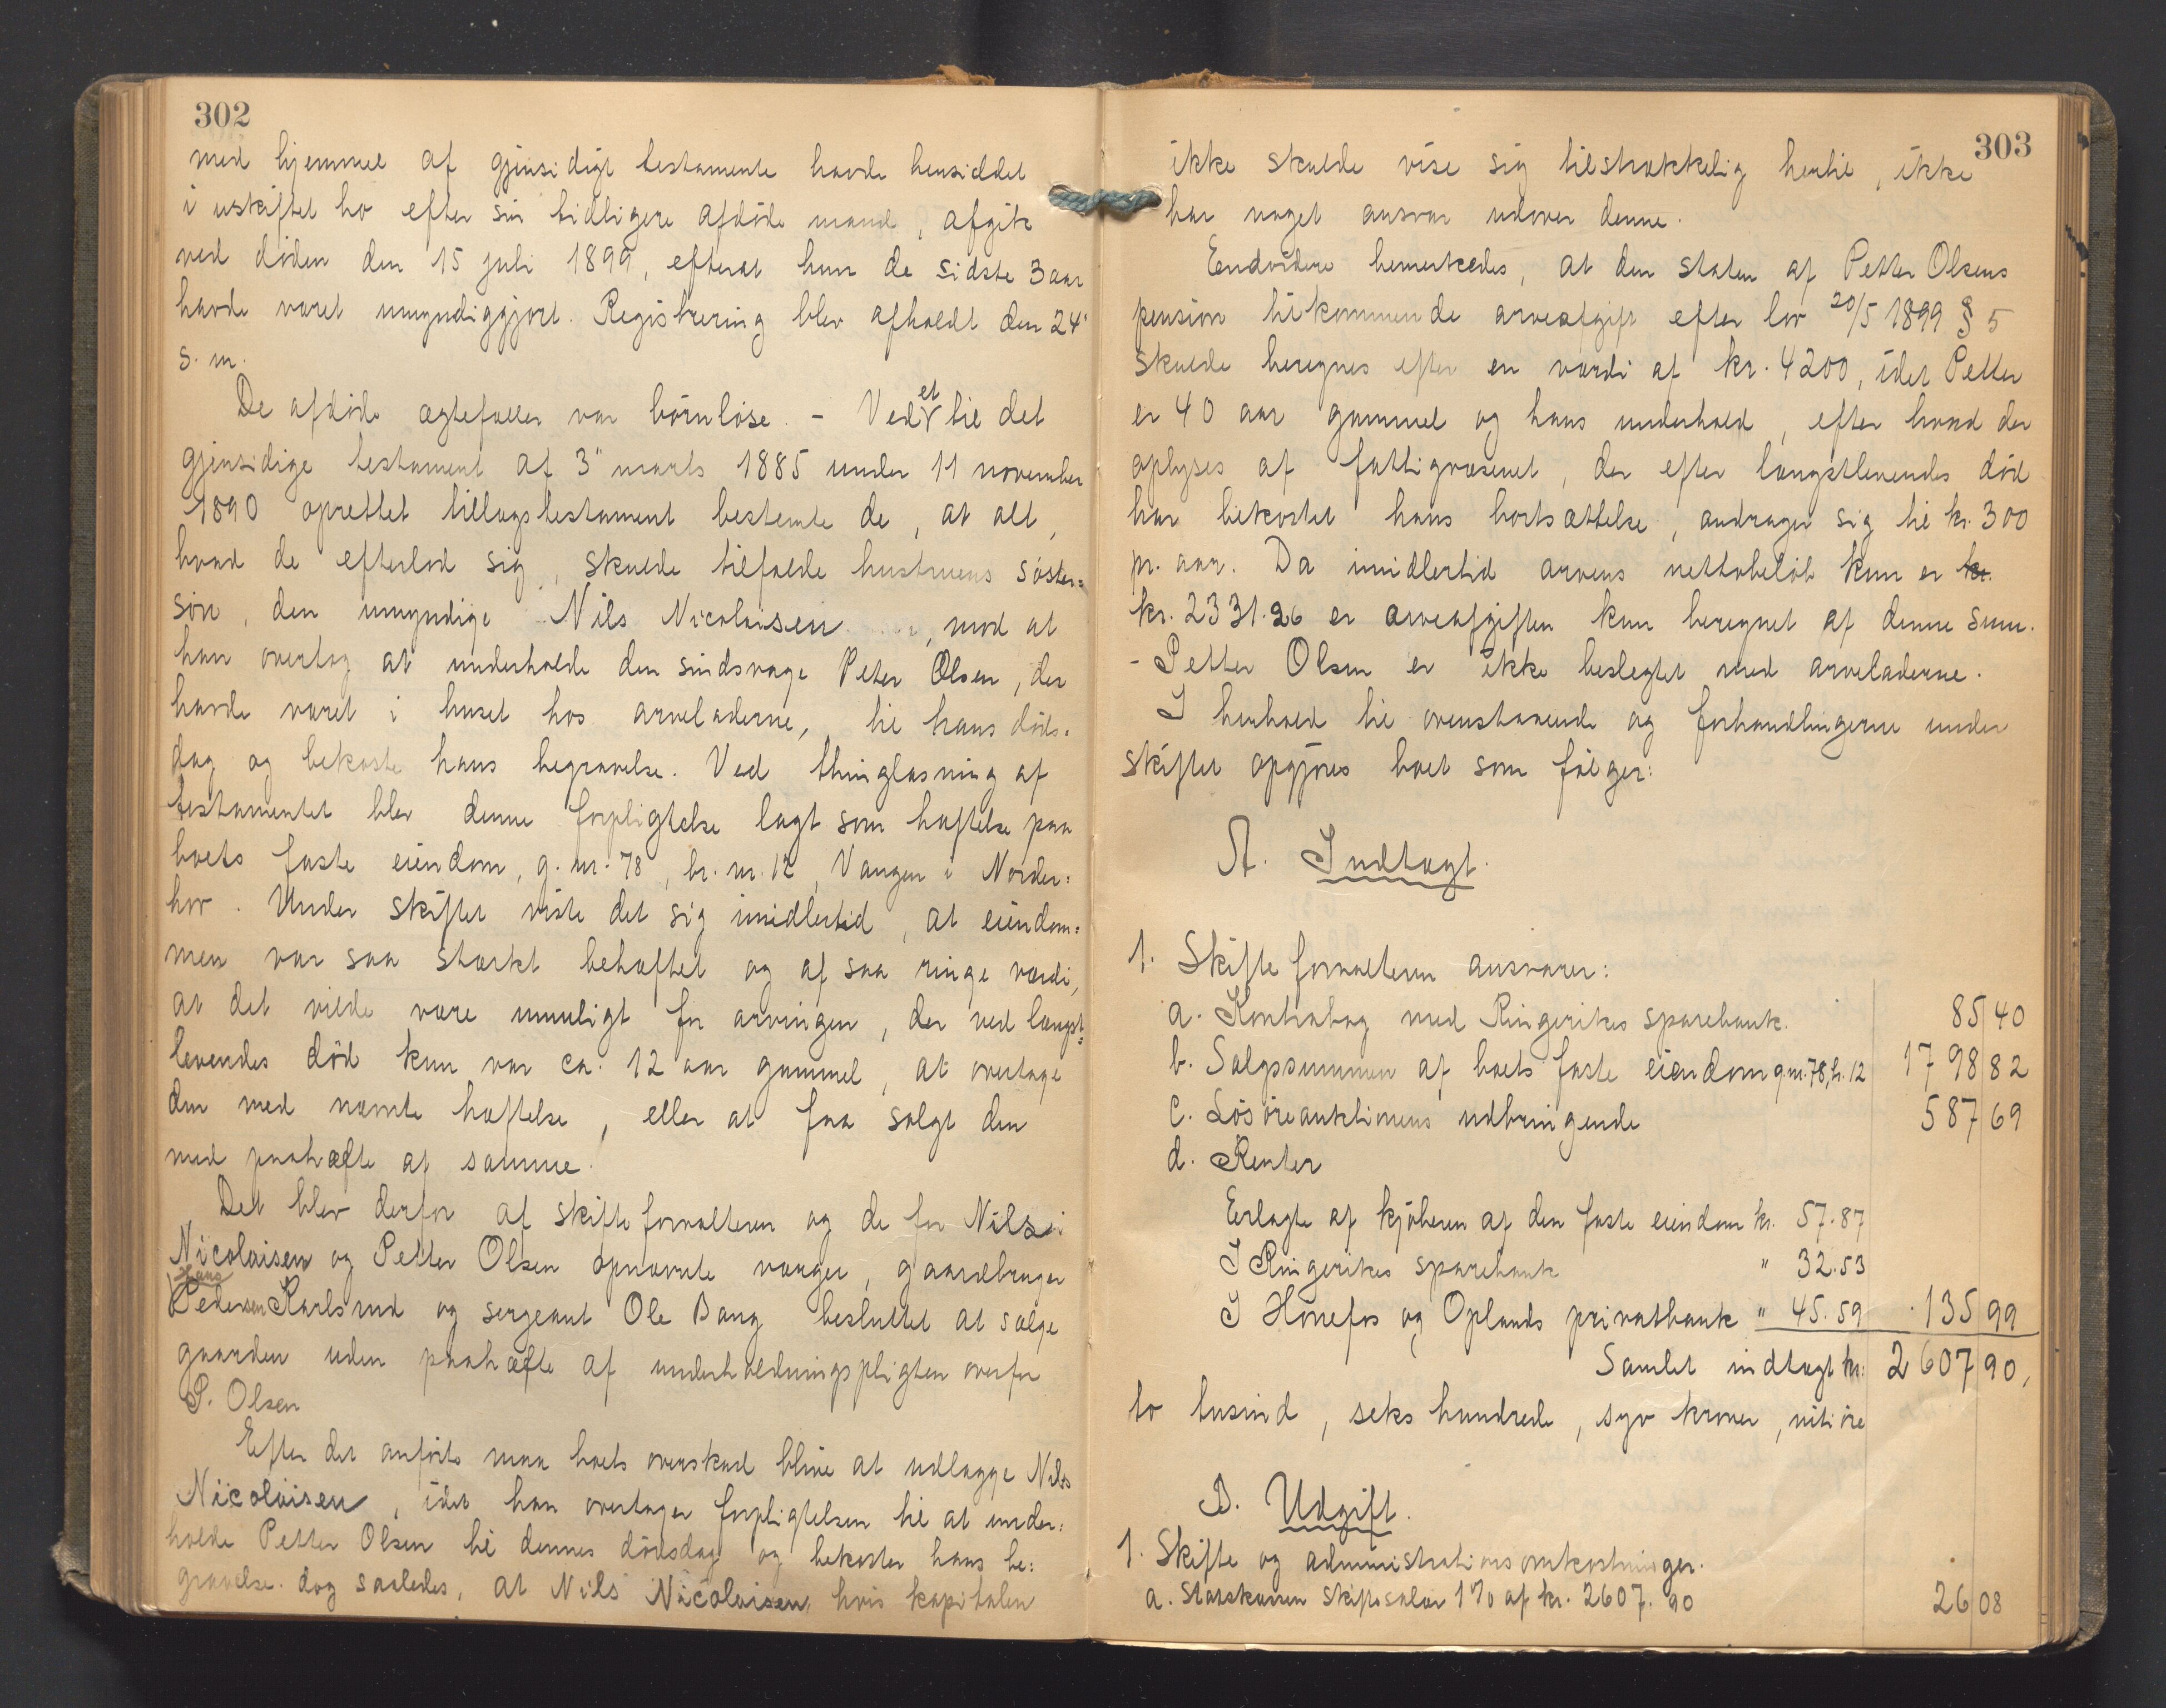 302
med hjemmel af gjensidigt testamente havde hensiddet
i uskiftet bo efter sin tidligere afdöde mand, afgik
ved döden den 15 juli 1899, efterat hun de sidste 3 aar
havde været umyndiggjort. Registrering blev afholdt den 24'
s. m.
De afdöde ægtefæller var börnlöse. - Ved et til det
gjensidige testament af 3" marts 1885 under 11 november
1890 oprettet tillægstestament bestemte de, at alt,
hvad de efterlod sig, skulde tilfalde hustruens söster=
sön, den umyndige Nils Nicolaisen, mod at
han overtog at underholde den sindsvage Peter Olsen, der
havde været i huset hos arveladerne, til hans döds=
dag og bekoste hans begravelse. Ved thinglæsning af
testamentet blev denne forpligtelse lagt som hæftelse paa
boets faste eiendom, g. nr. 78, br. nr. 12, Vangen i Norder=
hov. Under skiftet viste det sig imidlertid, at eiendom=
men var saa stærkt behæftet og af saa ringe værdi,
at det vilde være umuligt for arvingen, der ved længst=
levendes död kun var ca. 12 aar gammel, at overtage
den med nævnte hæftelse, eller at faa solgt den
med paahæfte af samme.
Det blev derfor af skifteforvalteren og de for Nils
Nicolaisen og Petter Olsen opnævnte værger, gaardbruger
Hans
Pedersen Karlsrud og sergeant Ole Bang besluttet at sælge
gaarden uden paahæfte af underholdningspligten overfor
P. Olsen
Efter det anförte maa boets overskud blive at udlægge Nils
Nicolaisen, idet han overtager forpligtelsen til at under=
holde Petter Olsen til dennes dödsdag og bekoster hans be=
gravelse. dog saaledes, at Nils Nicolaisen, hvis kapitalen
303
ikke skulde vise sig tilstrækkelig hertil, ikke
har noget ansvar udover denne.
Endvidere bemerkedes, at den staten af Petter Olsens
pension tilkommende arveafgift efter lov 20/5 1899 § 5
skulde beregnes efter en værdi af kr. 4200, idet Petter
er 40 aar gammel og hans underhold, efter hvad der
oplyses af fattigvæsenet, der efter længstlevendes död
har bekostet hans bortsættelse, andrager sig til kr. 300
pr. aar. Da imidlertid arvens nettobelöb kun er kr.
kr. 2331.26 er arveafgiften kun beregnet af denne sum.
- Petter Olsen er ikke beslegtet med arveladerne.
I henhold til ovenstaaende og forhandlingerne under
skiftet opgjöres boet som fölger:
A. Indtægt.
1. Skifteforvalteren ansvarer:
a. Kontrabog med Ringerikes sparebank. 85 40
b. Salgssummen af boets faste eiendom g.nr. 78, br. 12 1798 82
c. Lösöreauktionens udbringende 587 69
d. Renter
Erlagte af kjöberen af den faste eiendom kr. 57.87
I Ringerikes sparebank " 32.53
I Hönefos og Oplands privatbank " 45.59 135 99
Samlet indtægt kr. 2607 90,
to tusind, seks hundrede, syv kroner, niti öre
B. Udgift.
1. Skifte og administrationsomkostninger.
a. Statskassen skiftesalær 1% af kr. 2607.90 26 08